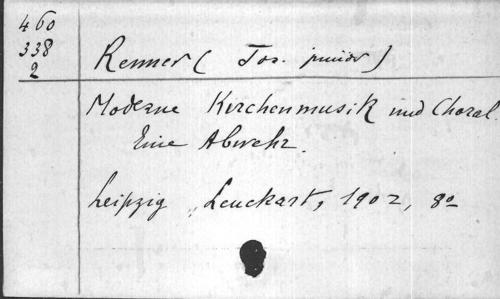 460
338
2
Renner ( Jos. junior )
Moderne Kirchenmusik und Choral.
Eine Abwehr.
Leipzig, Leuckart, 1902, 8o